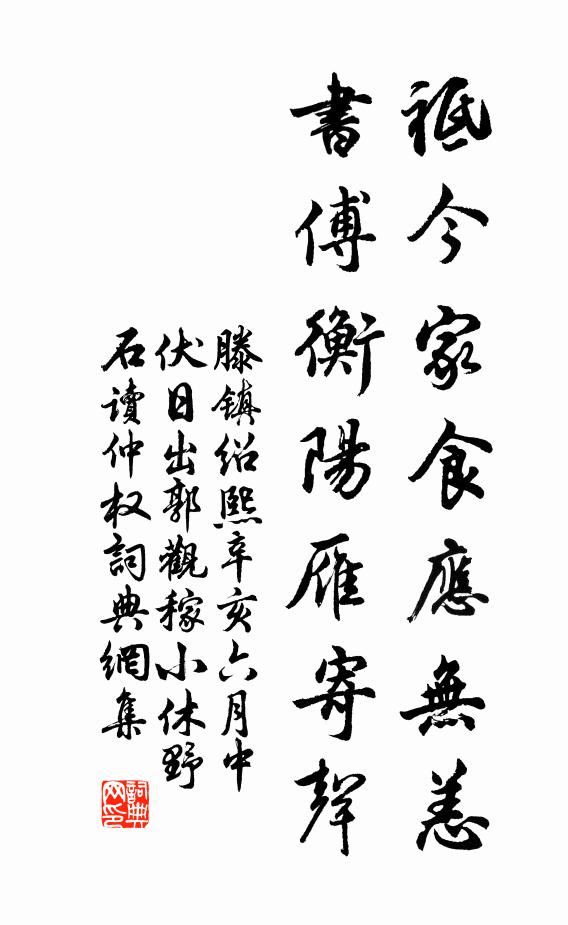 祗今家食應無恙
書傅衡陽雁寄聲
滕镇绍熙辛亥六月中
伏日出郭觀稼小休野
石讀仲权詞典網集
詞典网印